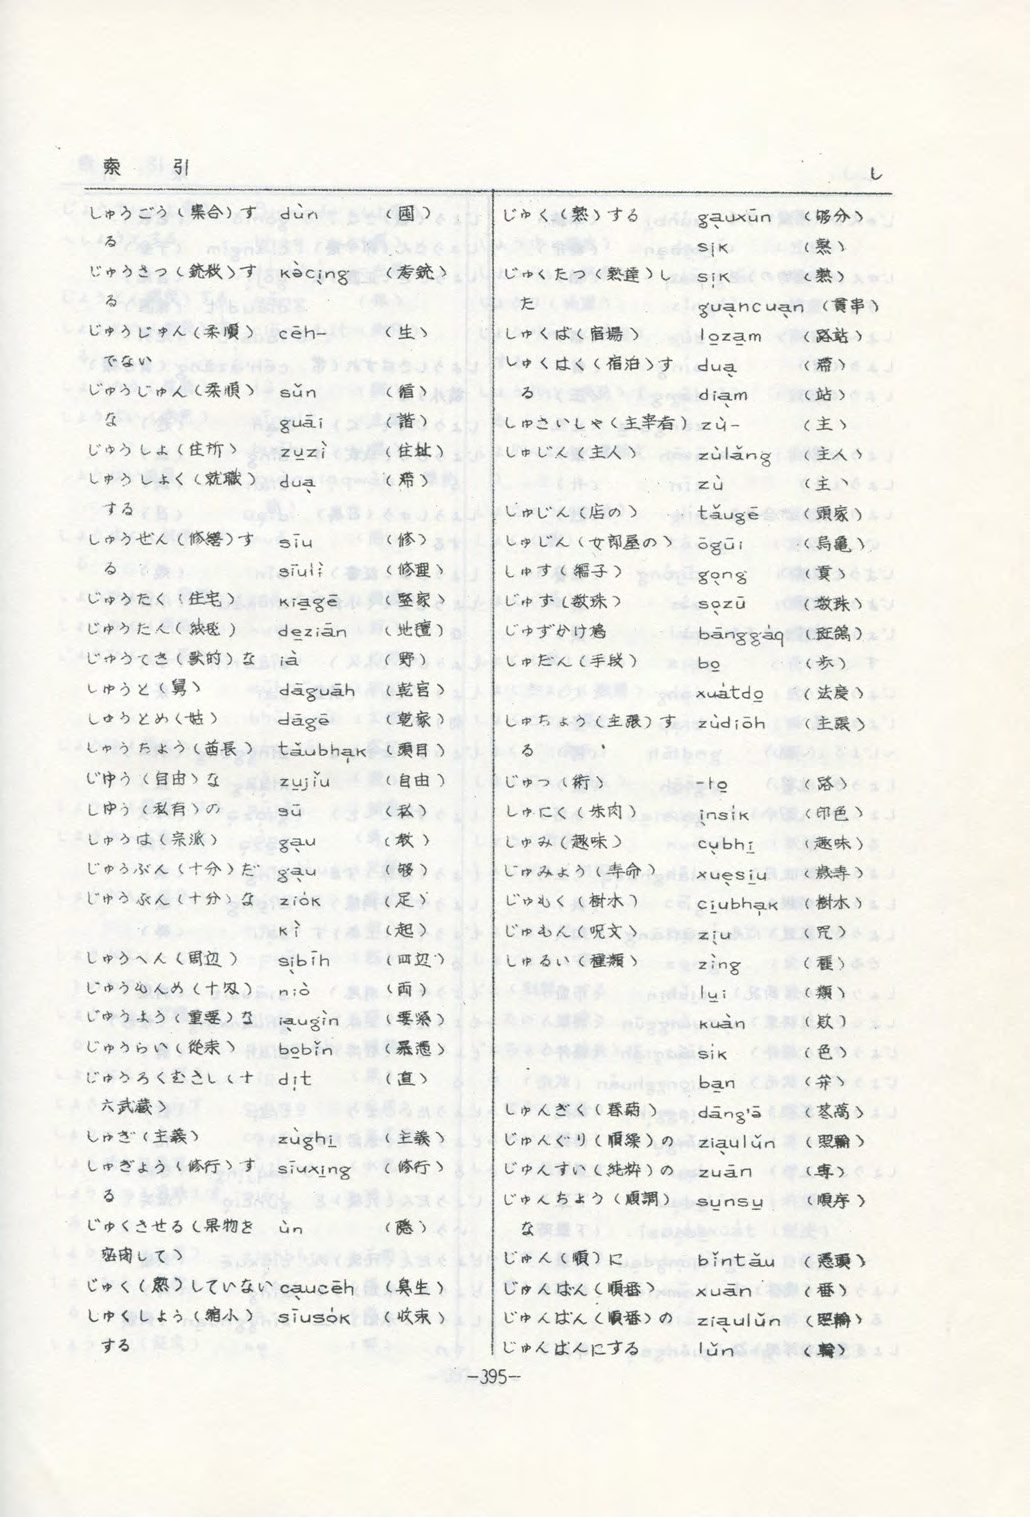 索 引
し
しゅうごう(集合)す dùn (囤)
る
じゅうさつ(銃殺)す kə̀cị̄ng (考銃)
る
じゅうじゅん(柔順) cēh- (生)
でない
じゅうじゅん(柔順) sǔn (循)
な guāi (諧)
じゅうしょ(住所) zu̱zì (住址)
しゅうしょく(就職) duạ (滞)
する
しゅうぜん(修繕)す sīu (修)
る sīulì (修理)
じゅうたく(住宅) kia̱gē (竪家)
じゅうたん(絨毯) de̱ziān (地氈)
じゅうてき(獣的)な ià (野)
しゅうと(舅) dāguāh (乾官)
しゅうとめ(姑) dāgē (乾家)
しゅうちょう(酋長) tǎubhạk (頭目)
じゆう(自由)な zu̱jǐu (自由)
しゆう(私有)の sū (私)
しゅうは(宗派) gạu (教)
じゅうぶん(十分)だ gạu (够)
じゅうぶん(十分)な ziók (足)
kǐ (起)
しゅうへん(周辺) sịbīh (四辺)
じゅうもんめ(十匁) niò (両)
じゅうよう(重要)な iạugìn (要緊)
じゅうらい(従来) bo̱bǐn
じゅうろくむさし(十 dịt (直)
六武蔵)
しゅぎ(主義) zùghi̱ (主義)
しゅぎょう(修行)す sīuxi̱ng (修行)
る
じゅくさせる(果物を ùn (隠)
密閉して)
じゅく(熟)していない cạucēh (臭生)
しゅくしょう(縮小) sīusók (収束)
する
じゅく(熟)する gạuxūn (够分)
sịk (熟)
じゅくたつ(熟達)し sịk (熟)
た guạncuạn (貫串)
しゅくば(宿場) lo̱za̱m (路站)
しゅくはく(宿泊)す duạ (滞)
る dia̱m (站)
しゅさいしゃ(主宰者) zù- (主)
しゅじん(主人) zùlǎng (主人)
zù (主)
しゅじん(店の) tǎugē (頭家)
しゅじん(女郎屋の) ōgūi (烏亀)
しゅす(繻子) gọng (貢)
じゅず(数珠) sọzū (数珠)
じゅずかけ鳩 bānggáq (斑鴿)
しゅだん(手段) bo̱ (歩)
xuátdo̱ (法度)
しゅちょう(主張)す zùdiōh (主張)
る
じゅつ(術) -lo̱ (路)
しゅにく(朱肉) ịnsík (印色)
しゅみ(趣味) cụbhi̱ (趣味)
じゅみょう(寿命) xuẹsi̱u (歳寿)
じゅもく(樹木) ci̱ubhạk (樹木)
じゅもん(呪文) zịu (咒)
しゅるい(種類) zìng (種)
lu̱i (類)
kuàn (款)
sík (色)
ba̱n
しゅんぎく(春菊) dāng'ō (茼萵)
じゅんぐり(順繰)の ziạulǔn (照輪)
じゅんすい(純粋)の zuān (専)
じゅんちょう(順調) su̱nsu̱ (順序)
な
じゅん(順)に bǐntǎu (憑頭)
じゅんばん(順番) xuān (番)
じゅんばん(順番)の ziạulǔn (照輪)
じゅんばんにする lǔn (輪)
-395-